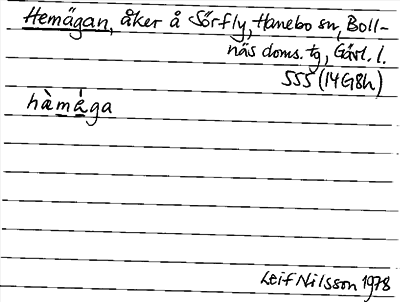 Hemägan, åker å Sörfly, Hanebo sn, Boll-
näs doms. tg, Gävl. l.
SSS (14G8h)
hàmága
Leif Nilsson 1978